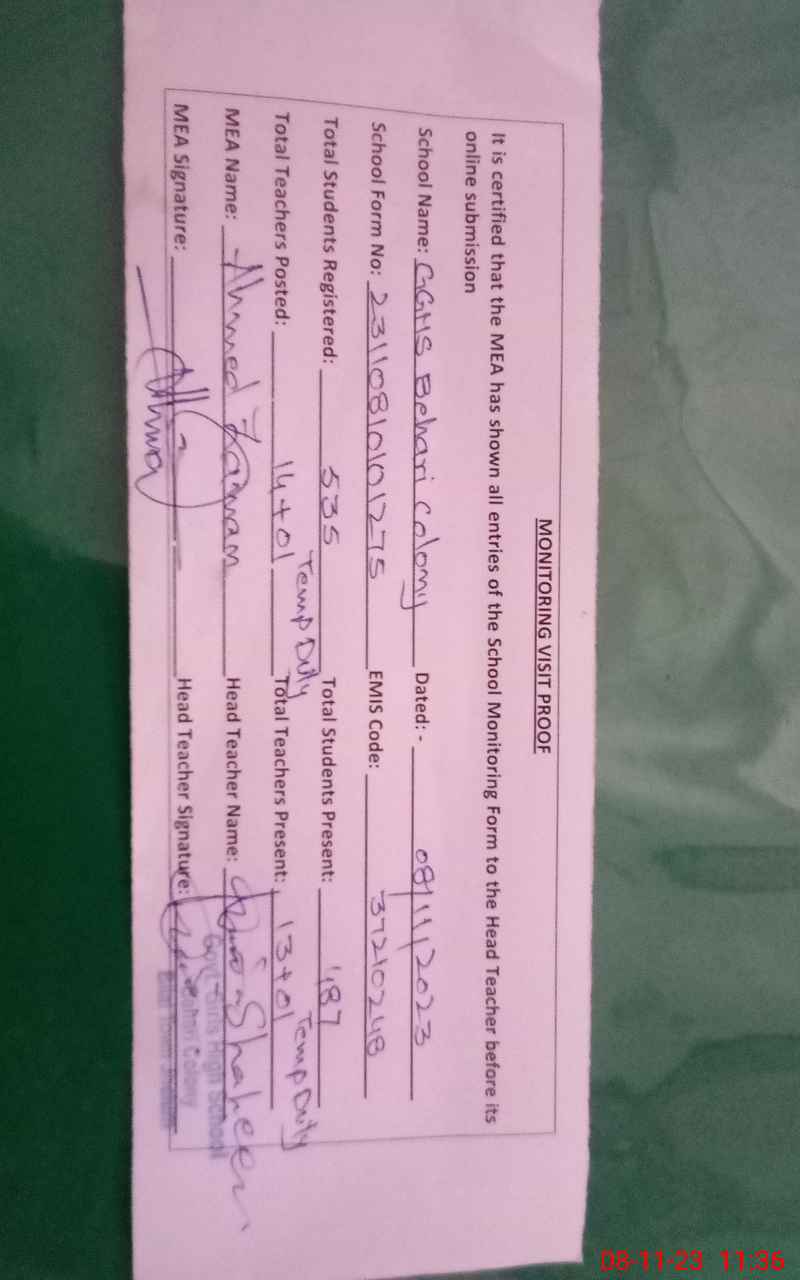 MONITORING VISIT PROOF
It is certified that the MEA has shown all entries of the School Monitoring Form to the Head Teacher before its
online submission
School Name: GGHS Behari Colony Dated: - 08/11/2023
School Form No: 2311081010 1275 EMIS Code: 37210248
Total Students Registered: 535 Total Students Present: 187
Temp Duty Temp Duty
Total Teachers Posted: 14+01 Total Teachers Present: 13+01
MEA Name: Ahmed Zaman Head Teacher Name: Shaheen
MEA Signature: Head Teacher Signature:
Govt. Girls High School
Colony
08-11-23 11:36